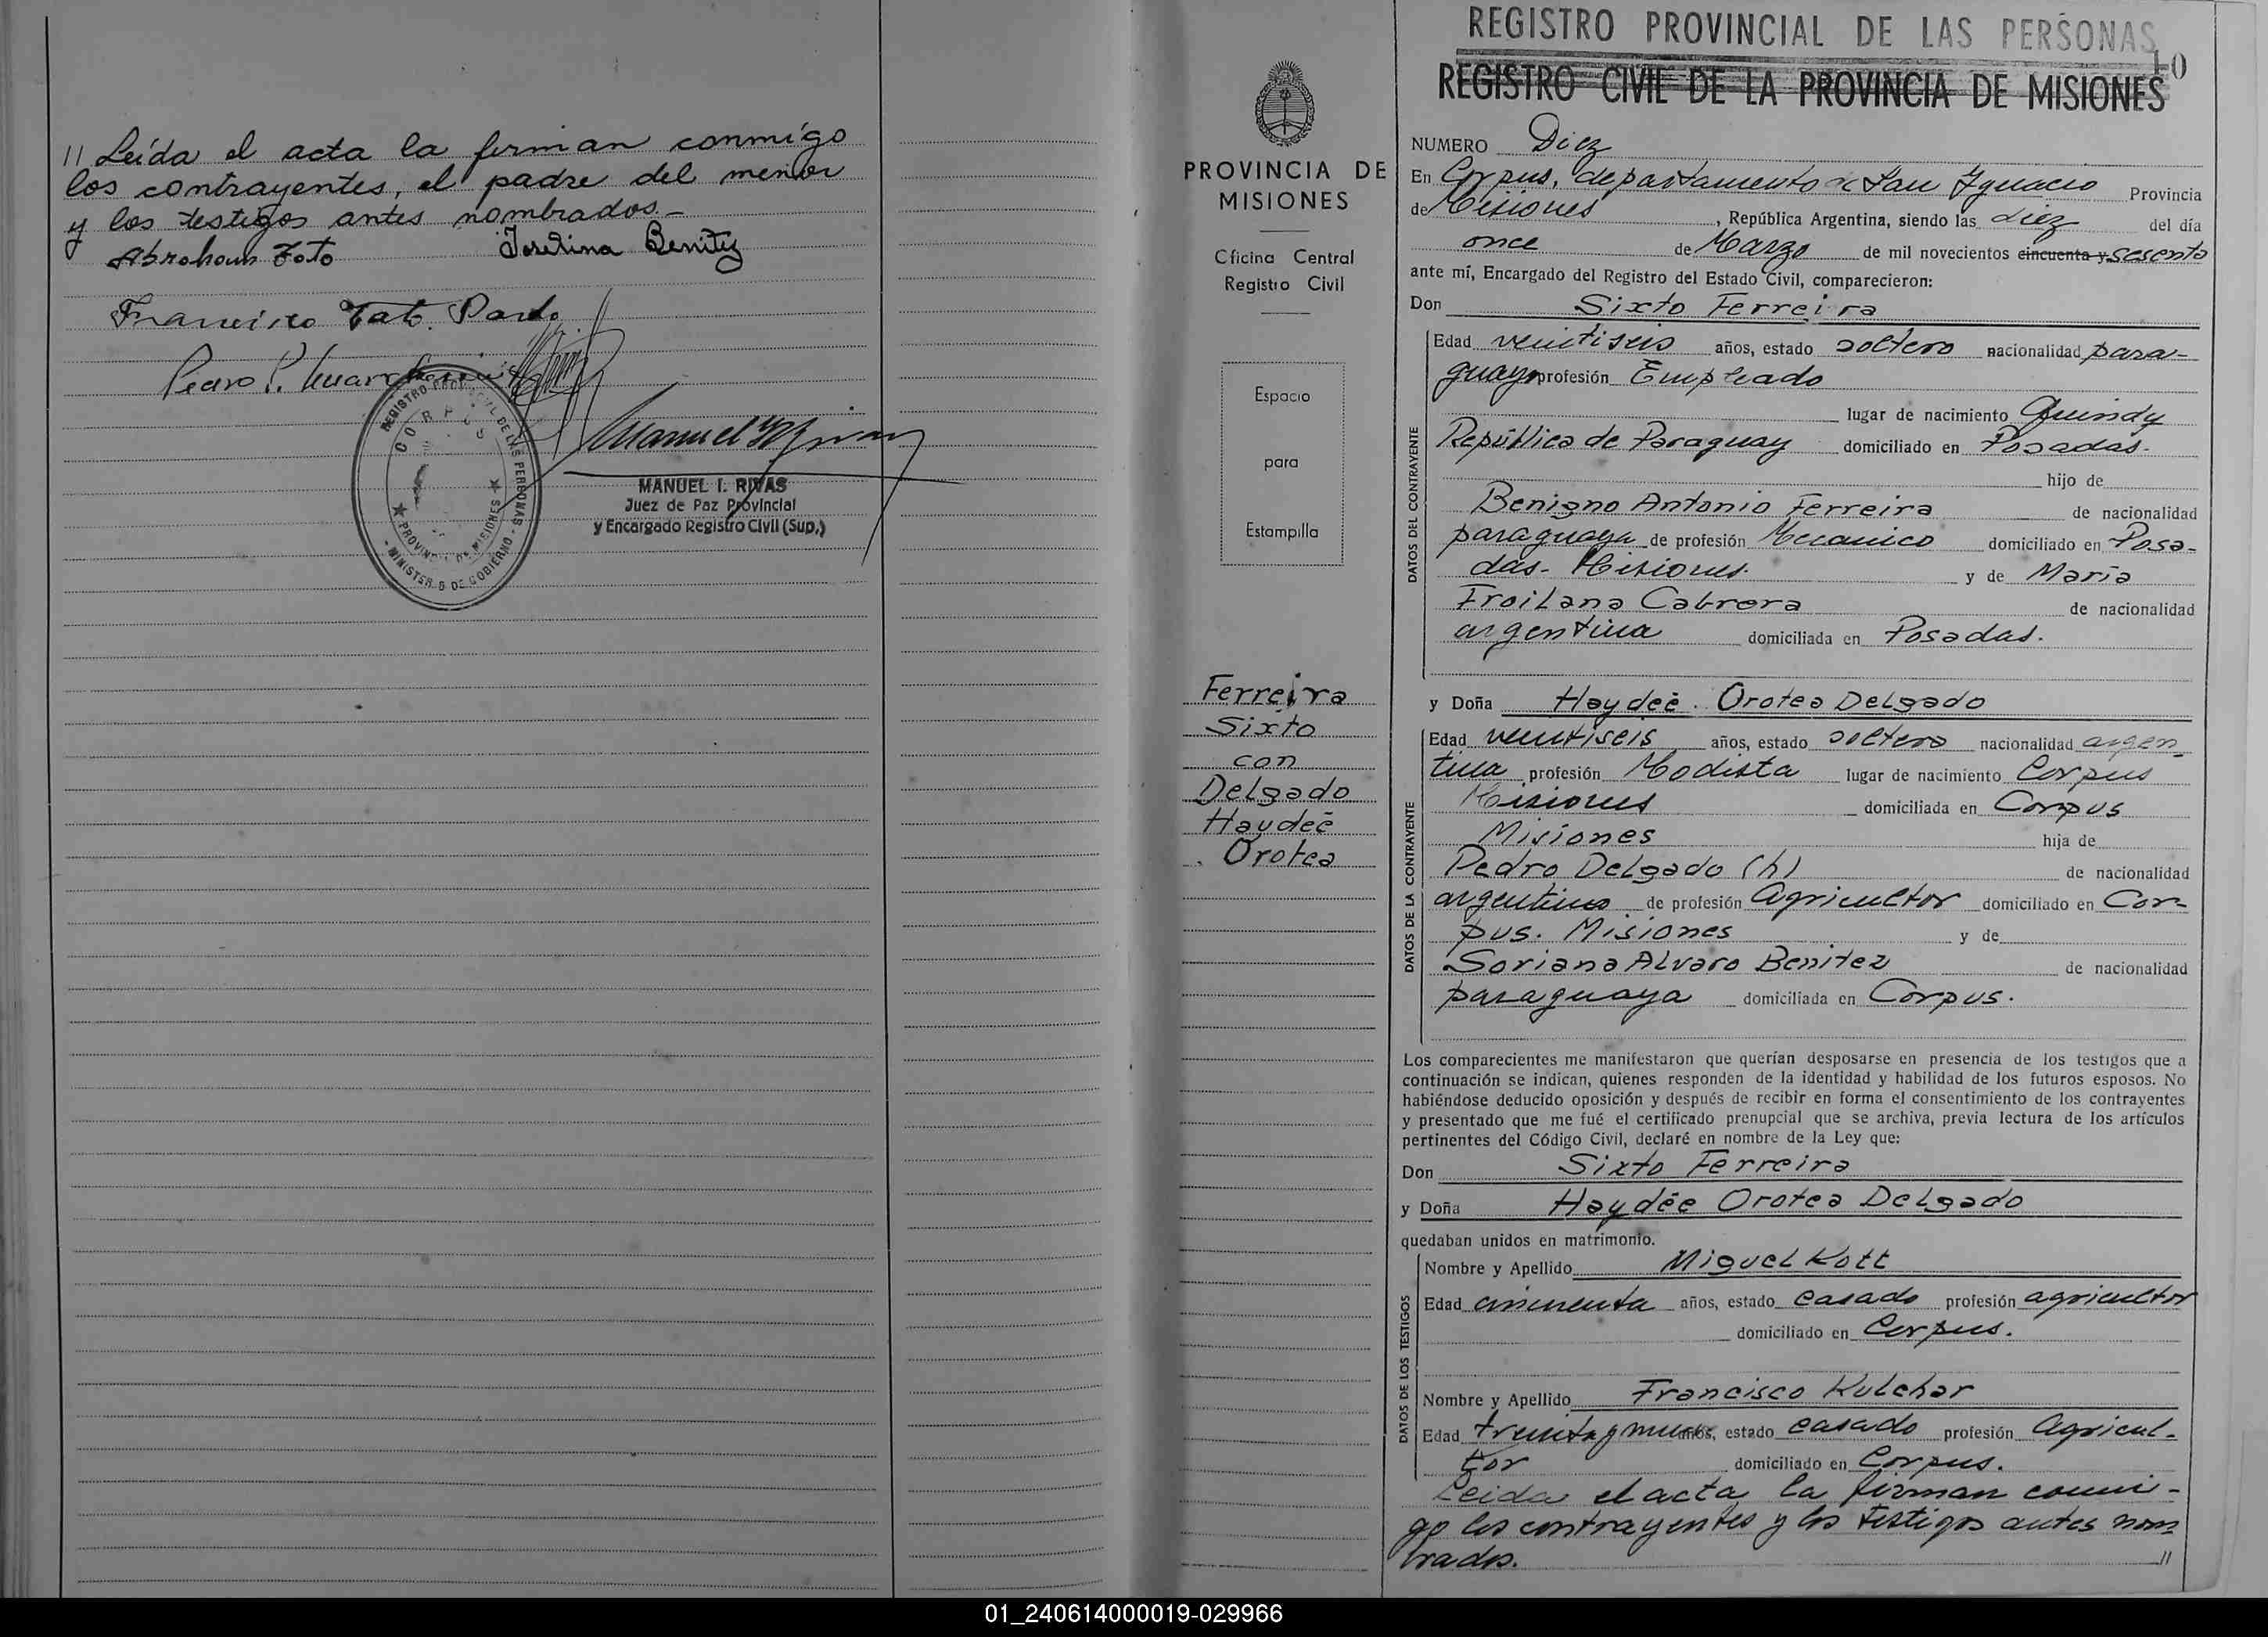 // Leída el acta la firman conmigo
los contrayentes, el padre del menor
y los testigos antes nombrados.-
Josefina Benitez
Francisco Pardo
Pedro P.
REGISTRO PROVINCIAL DE LAS PERSONAS
CORPUS
PROVINCIA DE MISIONES
MINISTERIO DE GOBIERNO
MANUEL I. RIVAS
Juez de Paz Provincial
y Encargado Registro Civil (Sup.)
PROVINCIA DE
MISIONES
Oficina Central
Registro Civil
Espacio
para
Estampilla
Ferreira
Sixto
con
Delgado
Haydeé
Orotea
REGISTRO PROVINCIAL DE LAS PERSONAS
10
REGISTRO CIVIL DE LA PROVINCIA DE MISIONES
NUMERO Diez
En Corpus, departamento de San Ignacio Provincia
de Misiones, República Argentina, siendo las diez del día
once de Marzo de mil novecientos cincuenta y sesenta
ante mí, Encargado del Registro del Estado Civil, comparecieron:
Don Sixto Ferreira
DATOS DEL CONTRAYENTE
Edad veintiseis años, estado soltero nacionalidad para-
guayo profesión Empleado
lugar de nacimiento Quindy
República de Paraguay domiciliado en Posadas.
hijo de
Benigno Antonio Ferreira de nacionalidad
paraguaya de profesión Mecanico domiciliado en Posa-
das- Misiones y de María
Froilana Cabrera de nacionalidad
argentina domiciliada en Posadas.
y Doña Haydeé Orotea Delgado
DATOS DE LA CONTRAYENTE
Edad veintiseis años, estado soltera nacionalidad argen-
tina profesión Modista lugar de nacimiento Corpus
Misiones domiciliada en Corpus
Misiones hija de
Pedro Delgado (h) de nacionalidad
argentino de profesión Agricultor domiciliado en Cor-
pus. Misiones y de
Soriana Alvaro Benitez de nacionalidad
paraguaya domiciliada en Corpus.
Los comparecientes me manifestaron que querían desposarse en presencia de los testigos que a
continuación se indican, quienes responden de la identidad y habilidad de los futuros esposos. No
habiéndose deducido oposición y después de recibir en forma el consentimiento de los contrayentes
y presentado que me fué el certificado prenupcial que se archiva, previa lectura de los artículos
pertinentes del Código Civil, declaré en nombre de la Ley que:
Don Sixto Ferreira
y Doña Haydée Orotea Delgado
quedaban unidos en matrimonio.
DATOS DE LOS TESTIGOS
Nombre y Apellido Miguel Kott
Edad cincuenta años, estado casado profesión agricultor
domiciliado en Corpus.
Nombre y Apellido Francisco Kulchar
Edad treinta y nueve años, estado casado profesión Agricul-
tor domiciliado en Corpus.
Leida el acta la firman conmi-
go los contrayentes y los testigos antes nom
brados. //
01_240614000019-029966